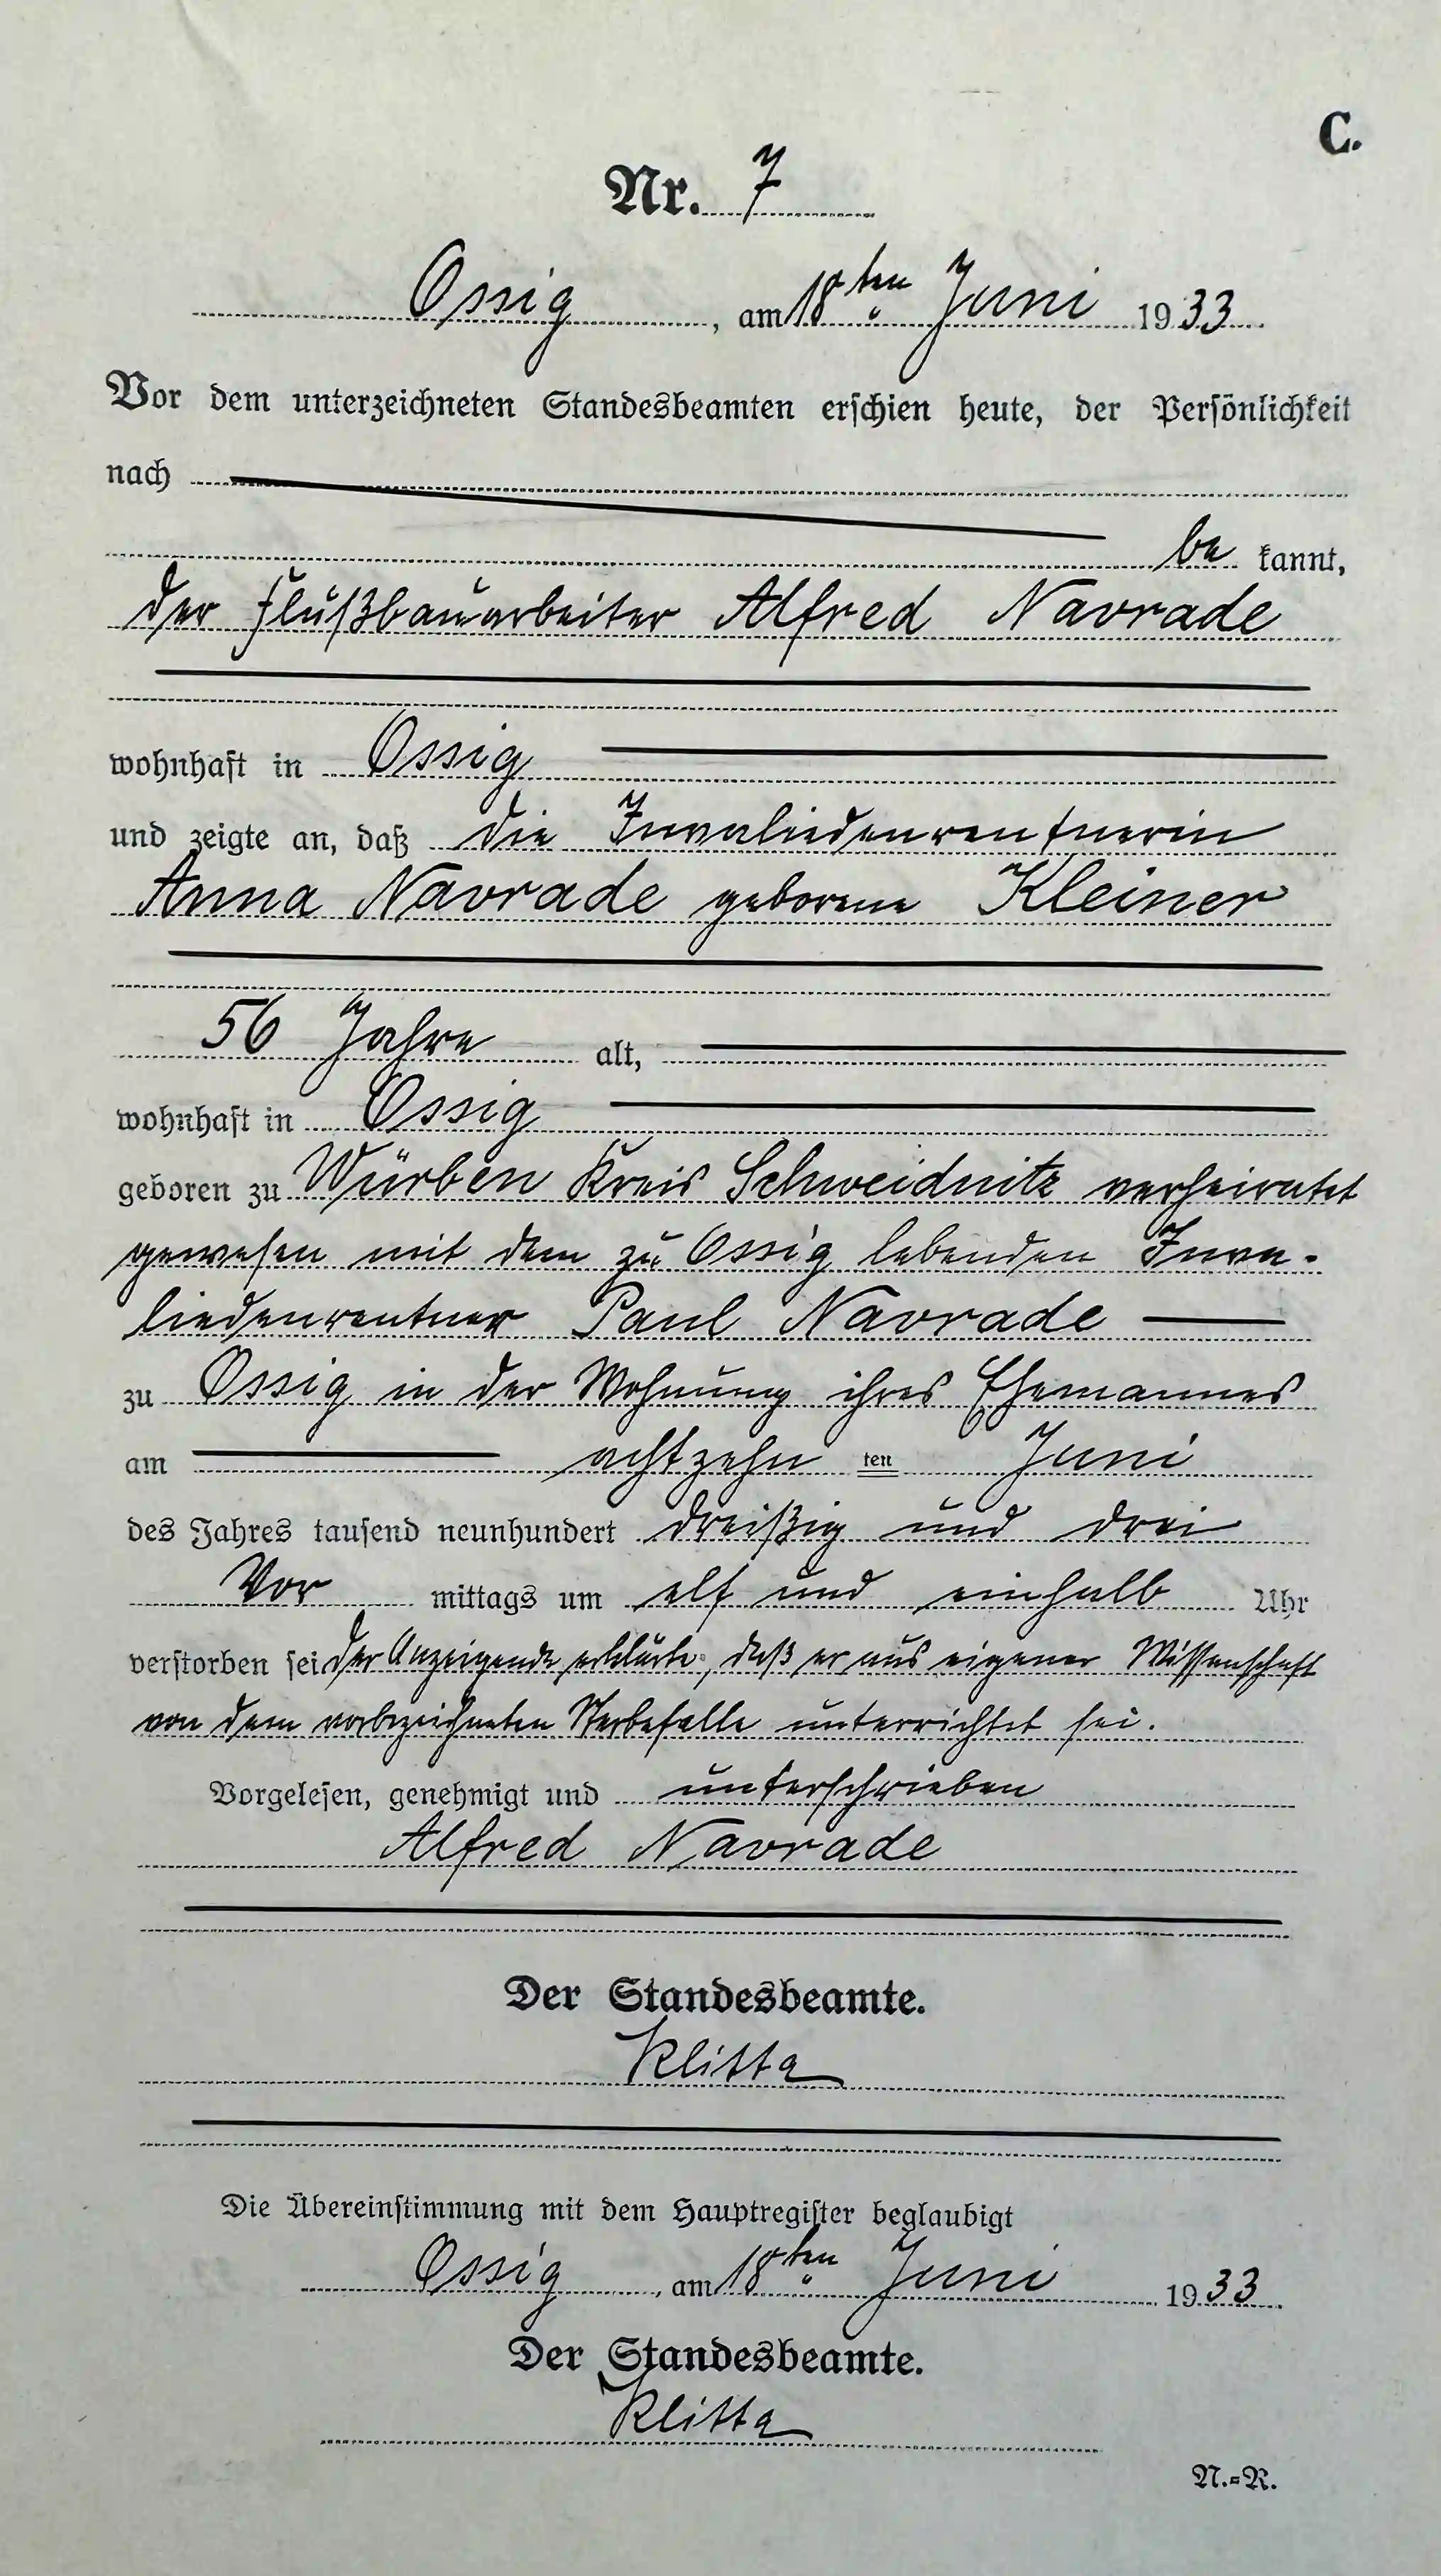 C.
Nr. 7
Ossig, am 18ten Juni 1933
Vor dem unterzeichneten Standesbeamten erschien heute, der Persönlichkeit
nach
be kannt,
der Flußbauarbeiter Alfred Navrade
wohnhaft in Ossig
und zeigte an, daß die Invaliedenrentnerin
Anna Navrade geborene Kleiner
56 Jahre alt,
wohnhaft in Ossig
geboren zu Würben Kreis Schweidnitz verheiratet
gewesen mit dem zu Ossig lebenden Inva-
liedenrentner Paul Navrade
zu Ossig in der Wohnung ihres Ehemannes
am achtzehn ten Juni
des Jahres tausend neunhundert dreißig und drei
Vor mittags um elf und einhalb Uhr
verstorben sei der Anzeigende erklärte, daß er aus eigener Wissenschaft
von dem vorbezeichneten Sterbefalle unterrichtet sei.
Vorgelesen, genehmigt und unterschrieben
Alfred Navrade
Der Standesbeamte.
Klitta
Die Übereinstimmung mit dem Hauptregister beglaubigt
Ossig, am 18ten Juni 1933
Der Standesbeamte.
Klitta
N.=R.